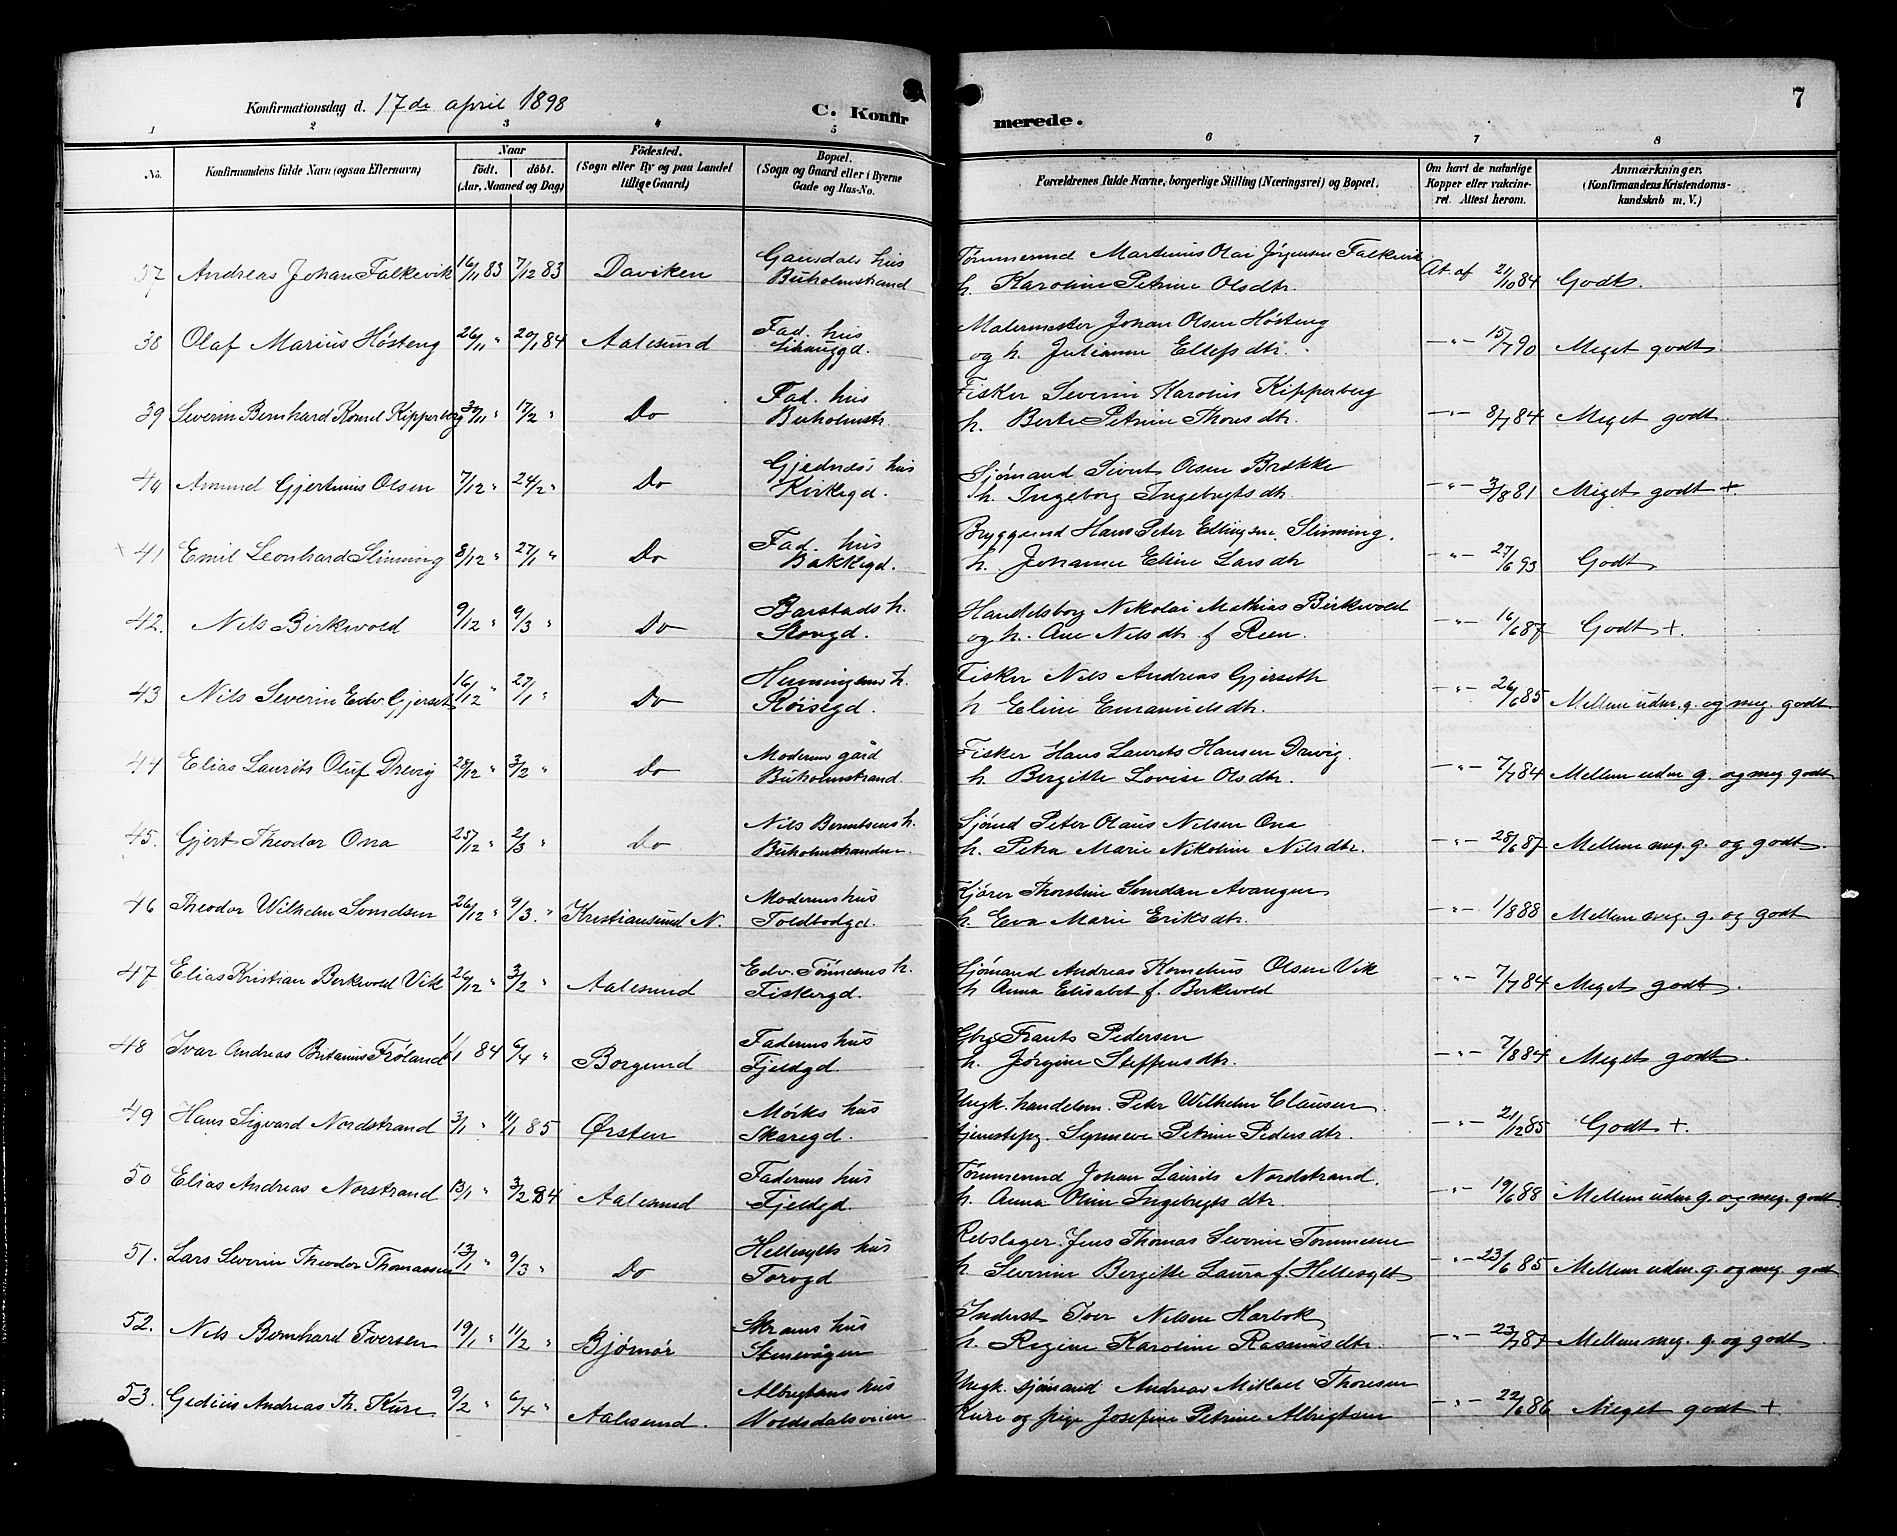 Konfirmationsdag d. 17de april 1898
C. Konfir
merede.
7
1 2 3 4 5 6 7 8
No. Konfirmandens fulde Navn (ogsaa Efternavn) Naar født. døbt. (Aar, Maaned og Dag) Födested. (Sogn eller By og paa Landet tillige Gaard) Bopæl. (Sogn og Gaard eller i Byerne Gade og Hus-No. Forældrenes fulde Navne, borgerlige Stilling (Næringsvei) og Bopæl. Om havt de naturlige Kopper eller vakcineret. Attest herom. Anmærkninger. (Konfirmandens Kristendomskundskab m. V.)
37 Andreas Johan Falkevik 16/11 83 7/12 83 Daviken Gausdals hus Buholmstrand
Tømmermd Martinus Olai Jørgensen Falkevik
h. Karoline Petrine Olsdtr. At. af 21/10 84 Godt.
38 Olaf Marius Høsteng 26/11 " 20/1 84 Aalesund Fad. hus
Malermester Johan Olsen Høsteng
og h. Julianne Ellefsdtr. -"- 15/7 90 Meget godt
39 Severin Bernhard Konrd Kipperberg 30/11 " 17/2 " Do Fad. hus Buholmstr
Fisker Severin Karolus Kipperberg
h. Berte Petrine Thorsdtr. -"- 8/7 84 Meget godt
40 Amund Gjertinus Olsen 7/12 " 24/2 " Do Gjednæss hus Kirkegd.
Sjømand Sivert Olsen Brække
h. Ingeborg Ingebrigtsdtr. -"- 3/8 81 Meget godt +
× 41 Emil Leonhard Slinning 8/12 " 27/1 " Do Fad. hus Bakkegd.
Bryggemd Hans Peter Ellingsen Slinning.
h. Johanne Eline Larsdtr -"- 27/6 93 Godt
42. Nils Birkevold 9/12 " 9/3 " Do Barstads h. Kongd.
Handelsborg Nikolai Mathias Birkevold
og h. Ane Nilsdtr. f. Reen. -"- 16/6 87 Godt +.
43 Nils Severin Edv. Gjerset 16/12 " 27/1 " Do Henningsens h. Røisegd.
Fisker Nils Andreas Gjerseth
h Eline Emanuelsdtr. -"- 26/6 85 Mellem udm. g. og meg. godt
44 Elias Laurits Oluf Drevig 28/12 " 3/2 " Do Moderens gård Buholmstrand.
Fisker Hans Laurits Hansen Drevig.
h. Bergitte Lovise Olsdtr. -"- 7/7 84 Mellem udm g. og meg godt
45. Gjert Theodor Ona 25/12 " 2/3 " Do Nils Berntsens h. Buholmstranden
Sjømd Peter Olaus Nilsen Ona
h. Petra Marie Nikoline Nilsdtr. -"- 28/6 87 Mellem meg. g. og godt.
46 Theodor Wilhelm Svendsen 26/12 " 9/3. " Kristiansund N. Moderens hus Toldbodgd.
Kjører Thorstein Svendsen Avangen
h. Eva Marie Eriksdtr. -"- 1/8 88 Mellem meg. g. og godt
47 Elias Kristian Berkevold Vik 26/12 " 3/2 " Aalesund Edv. Tønnesens h. Fiskergd.
Sjømand Andreas Kornelius Olsen Vik
h Anna Elisabet f. Berkevold -"- 7/7 84 Meget godt.
48 Ivar Andreas Britanus Frøland 1/1 84 6/4 " Borgund Faderens hus Fjeldgd
Gbrg Frants Pedersen
h. Jørgine Steffensdtr. -"- 7/8 84 Meget godt.
49 Hans Sigvard Nordstrand 3/1 " 11/1 85 Ørsten Mørks hus Skaregd.
Ungk. handelsm. Peter Wilhelm Clausen
tjenestepg. Synneve Petrine Pedersdtr. -"- 21/12 85 Godt +.
50 Elias Andreas Norstrand 13/1 " 3/2 84 Aalesund Faderens hus Fjeldgd.
Tømmermd Johan Laurits Nordstrand.
h. Anna Oline Ingebrigtsdtr -"- 19/6 88 Mellem udm g. og meg. godt
51. Lars Severin Theodor Thomassen 13/1 " 9/3 " Do Hellesylts hus Torvgd
Rebslager Jens Thomas Severin Tommesen
h. Severine Bergitte Laura f. Hellesylt -"- 23/6 85 Mellem udm. g. og meg. godt
52. Nils Bernhard Iversen 19/1 " 11/2 " Bjørnør Skrams hus Stenevågen
Inderst Iver Nilsen Harbok
h. Regine Karoline Rasmusdtr. -"- 23/7 87 Mellem meg. g. og godt.
53. Gedius Andreas Th. Kure 9/2 " 6/4 " Aalesund. Albregtsens hus Volsdalsveien
Ungk. sjømand Andreas Mikael Thoresen
Kure og pige Josefine Petrine Albrigtsen -"- 22/6 86 Meget godt +